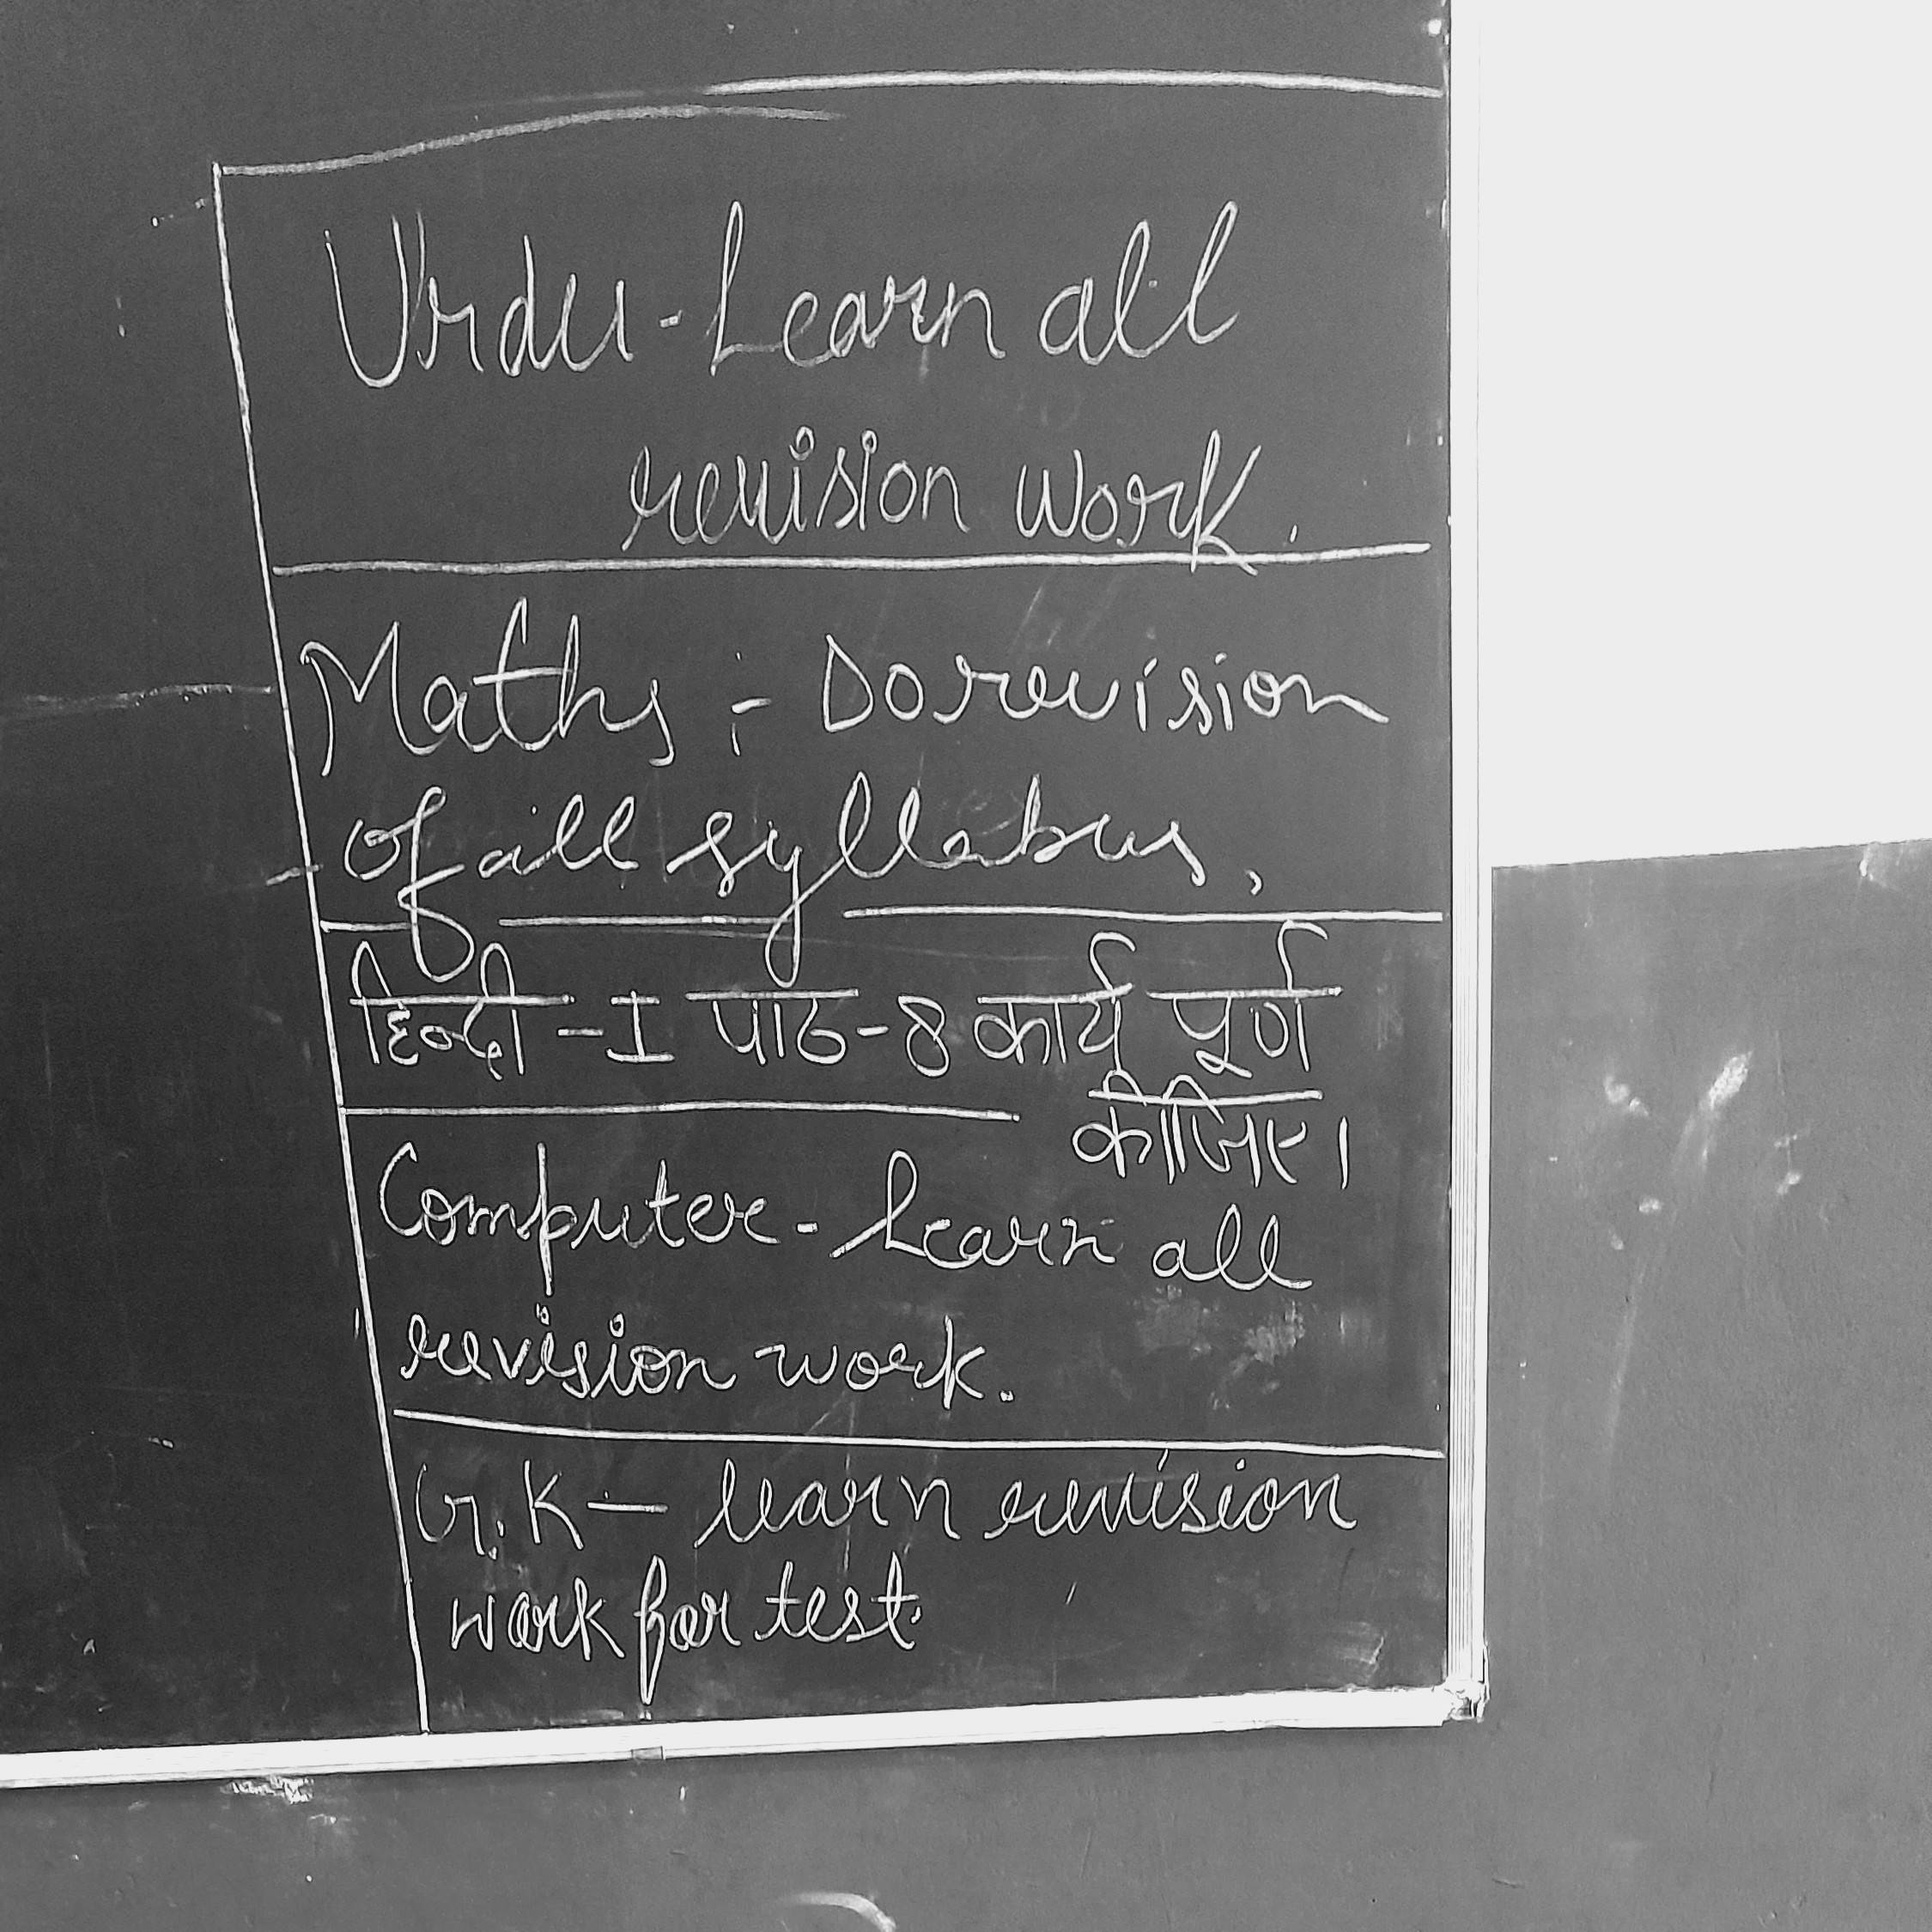 Urdu - Learn all
revision work.
Maths :- Do revision
of all syllebus,
हिन्दी - I पाठ-8 कार्य पूर्ण
कीजिए।
Computer - Learn all
revision work.
G.K — learn revision
work for test.